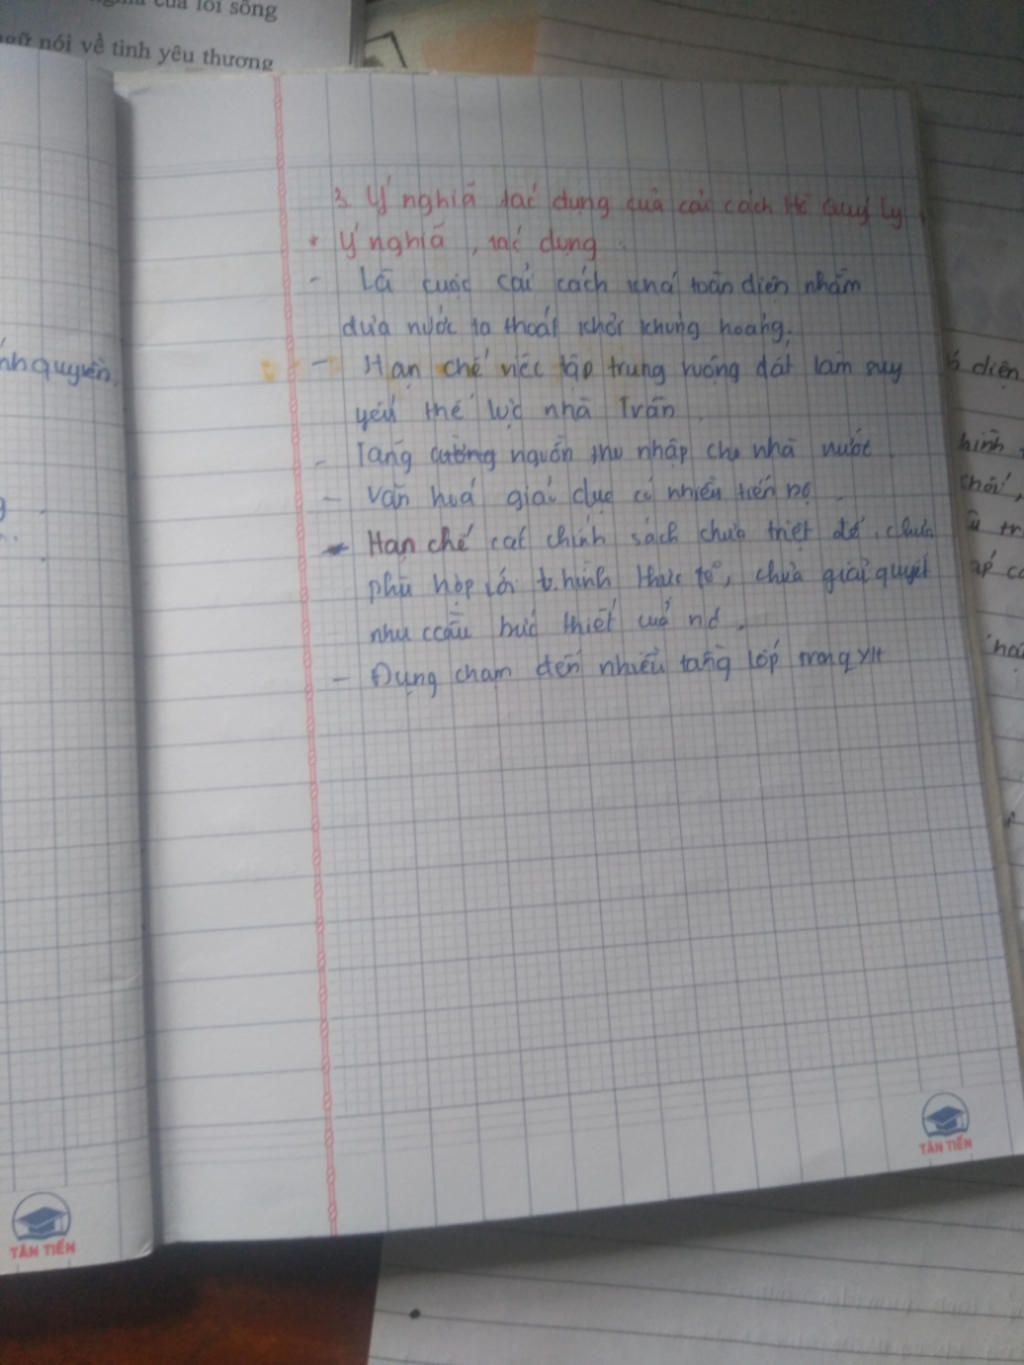 của lối sống
ngữ nói về tình yêu thương
3. Ý nghĩa tác dụng của cải cách Hồ Quý Ly
* Ý nghĩa, tác dụng.
- Là cuộc cải cách khá toàn diện nhằm
đưa nước ta thoát khỏi khủng hoảng.
- Hạn chế việc tập trung ruộng đất làm suy
yếu thế lực nhà Trần.
- Tăng cường nguồn thu nhập cho nhà nước
- Văn hoá giáo dục có nhiều tiến bộ.
- Hạn chế các chính sách chưa triệt để, chưa
phù hợp với t.hình thực tế, chưa giải quyết
nhu ccầu bức thiết cuả nd.
- Đụng chạm đến nhiều tầng lớp trong XH
quyền.
diện
hình
TÂN TIẾN
TÂN TIẾN